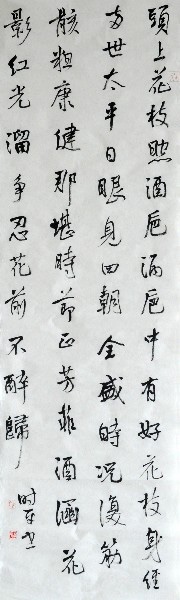 頭上花枝照酒巵酒巵中有好花枝身經
兩世太平日眼見四朝全盛時況復筋
骸粗康健那堪時節正芳菲酒涵花
影紅光溜爭忍花前不醉歸